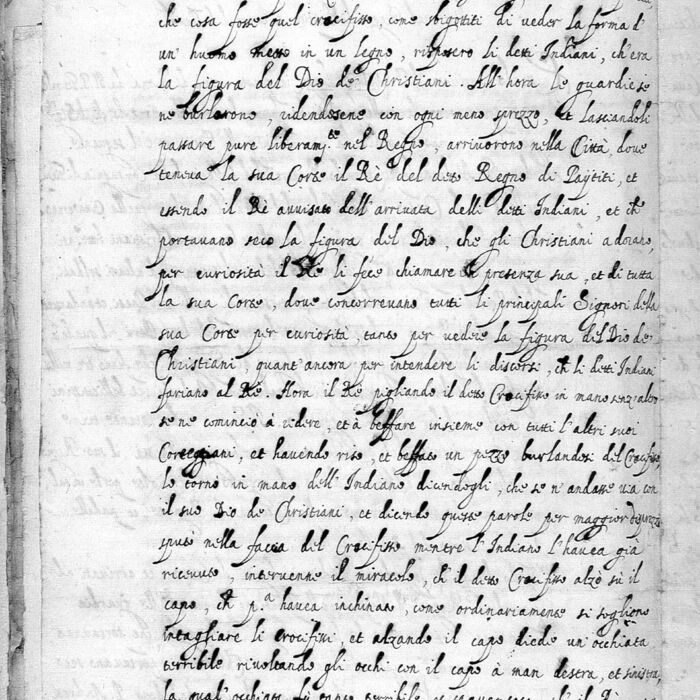 che cosa fosse quel crocifisso, come sbigottiti di veder la forma d'
un' huomo messo in un legno, risposero li detti Indiani, ch'era
la figura del Dio de Christiani. All'hora le guardie se
ne burlorono, ridendosene con ogni meno sprezzo, et lasciandoli
passare pure liberam.te nel Regno, arrivorono nella Città, dove
teneva la sua Corte il Rè del detto Regno di Paÿtiti, et
essendo il Rè avvisato dell'arrivata delli detti Indiani, et ch
portavano seco la figura del Dio, che gli Christiani adorano,
per curiosità il Rè li fece chiamare in presenza sua, et di tutta
la sua Corte, dove concorrevano tutti li principali Signori della
sua Corte per curiosità, tanto per vedere la figura del Dio de
Christiani, quant'ancora per intendere li discorsi, ch li detti Indiani
fariano al Rè. Hora il Rè pigliando il detto Crocifisso in mano senz'altro
se ne cominciò à ridere, et à beffare insieme con tutti l'altri suoi
Corteggiani, et havendo riso, et beffato un pezzo burlandosi del Crocifisso,
lo tornò in mano dell'Indiano dicendogli, che se n'andasse via con
il suo Dio de Christiani, et dicendo queste parole per maggior disprezzo
sputò nella faccia del Crocifisso mentre l'Indiano l'havea già
ricevuto, intervenne il miracolo, ch'il detto Crocifisso alzò sù il
capo, ch p.a havea inchinato, come ordinariamente si sogliono
intagliare li crocifissi, et alzando il capo diede un'occhiata
terribile rivoltando gli occhi con il capo à man destra, et sinistra,
la qual'occhiata fù tanto terribile, et